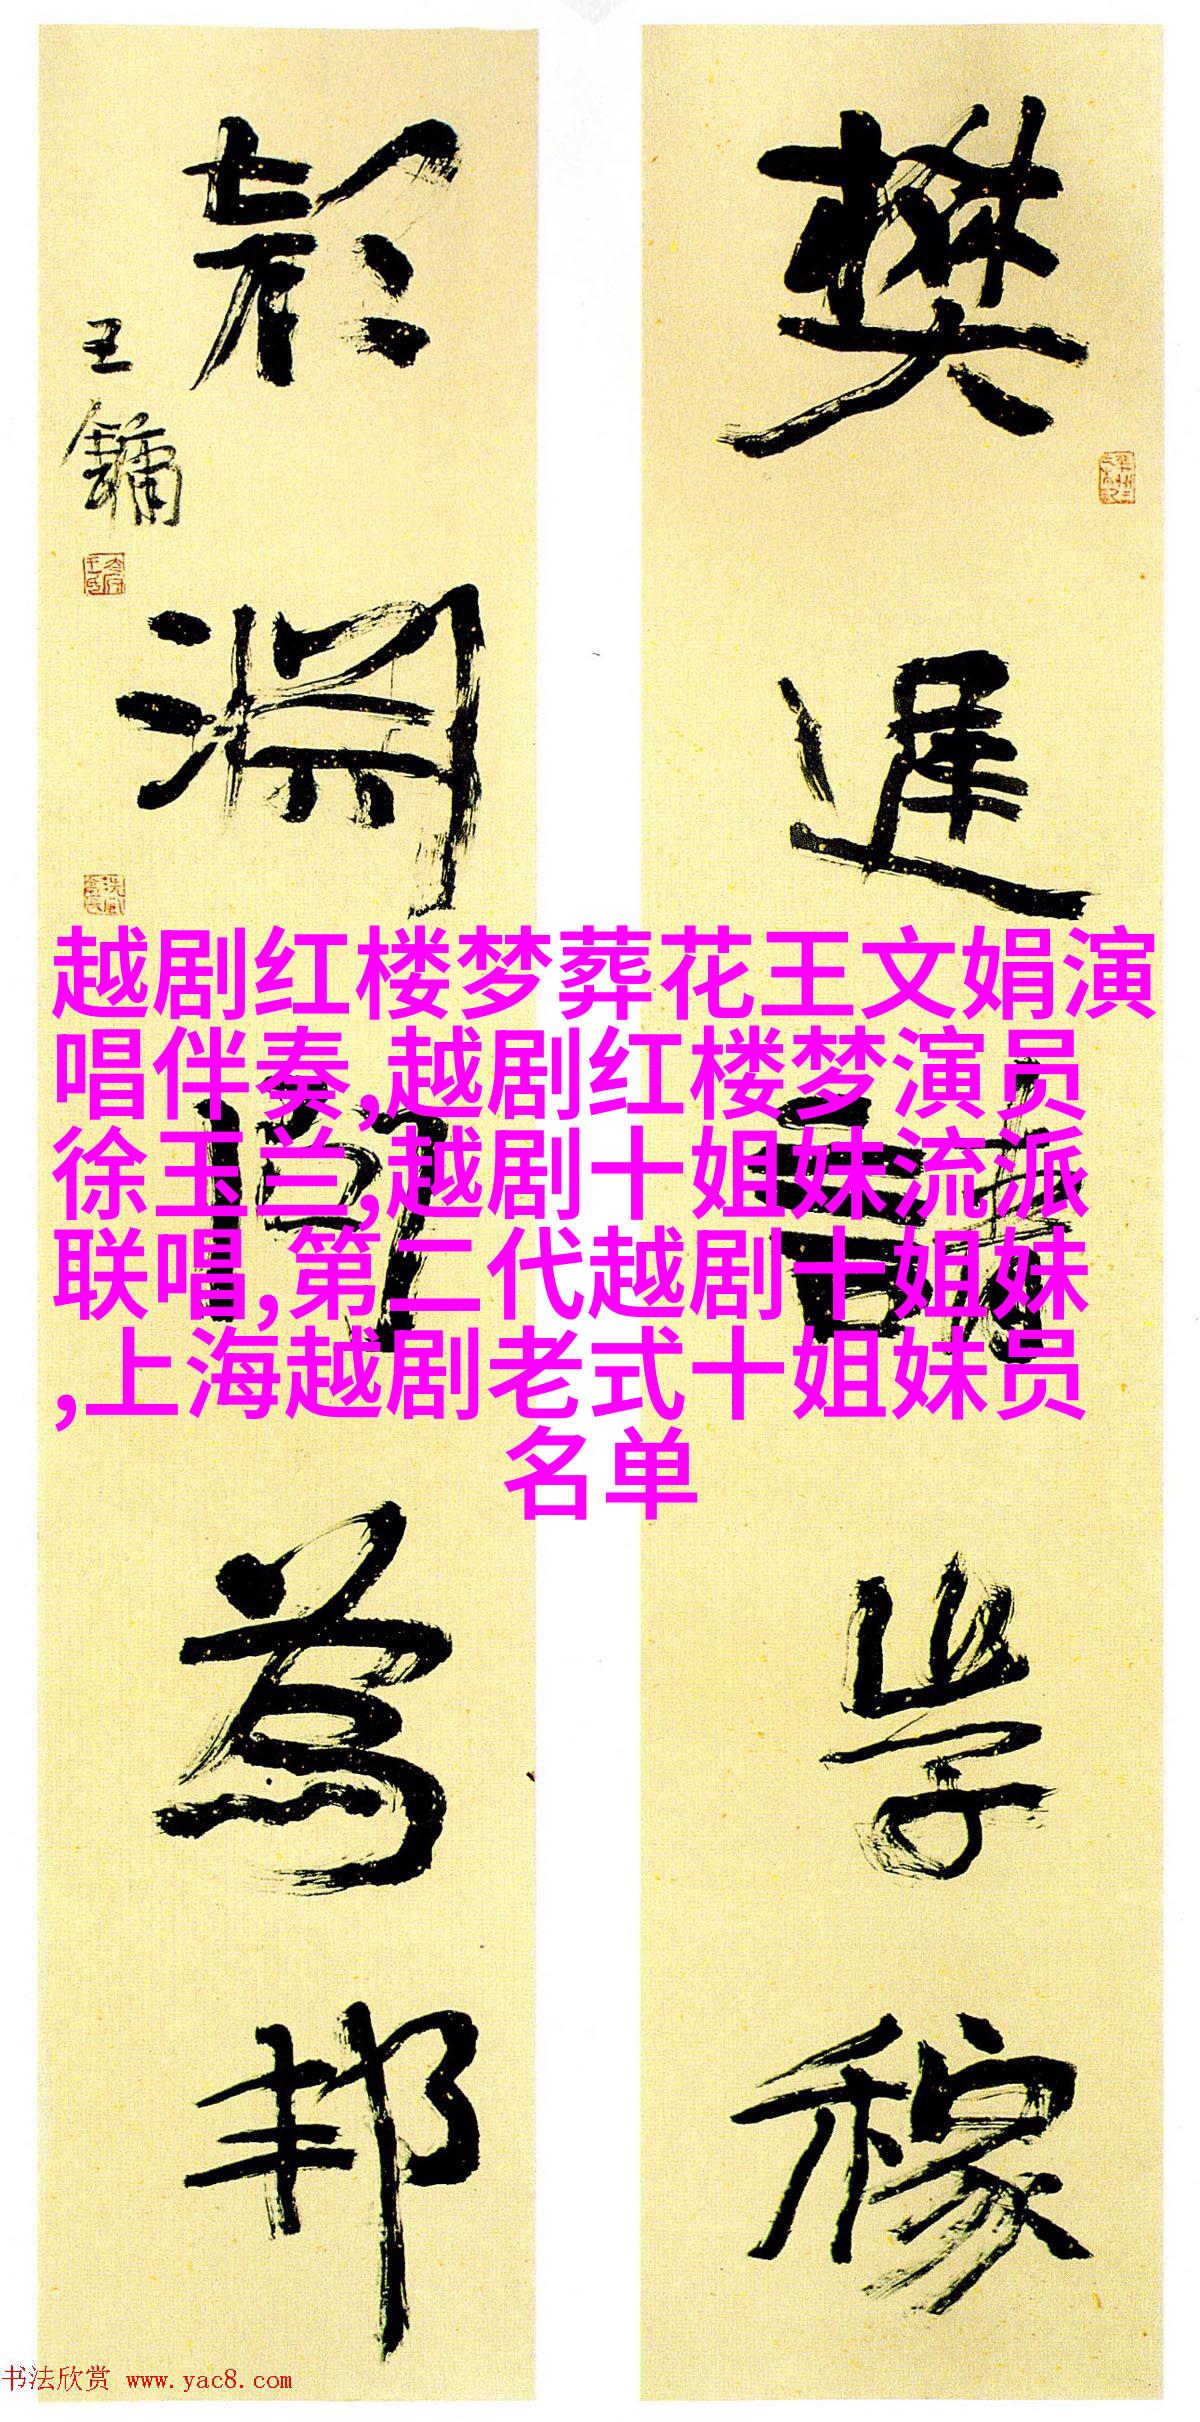 樊遲請學稼
淵問為邦
王鏞
越剧红楼梦葬花王文娟演
唱伴奏,越剧红楼梦演员
徐玉兰,越剧十姐妹流派
联唱,第二代越剧十姐妹
,上海越剧老式十姐妹员
名单
书法欣赏 www.yac8.com